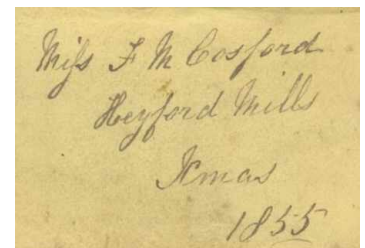 Miss F M Cosford
Heyford Mills
Xmas
1855